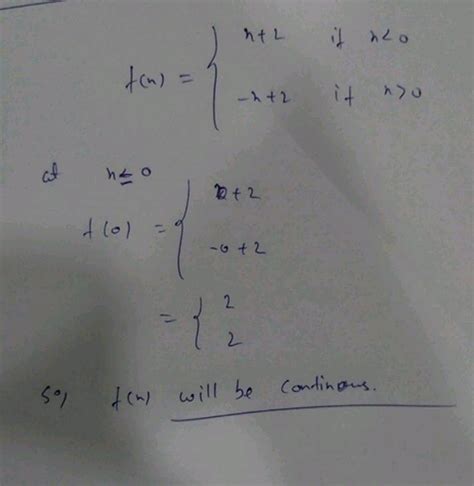 x+2 if x<0
f(x) =
-x+2 if x>0
at x≤0
0+2
f(0) =
-0+2
2
=
2
So, f(x) will be continous.